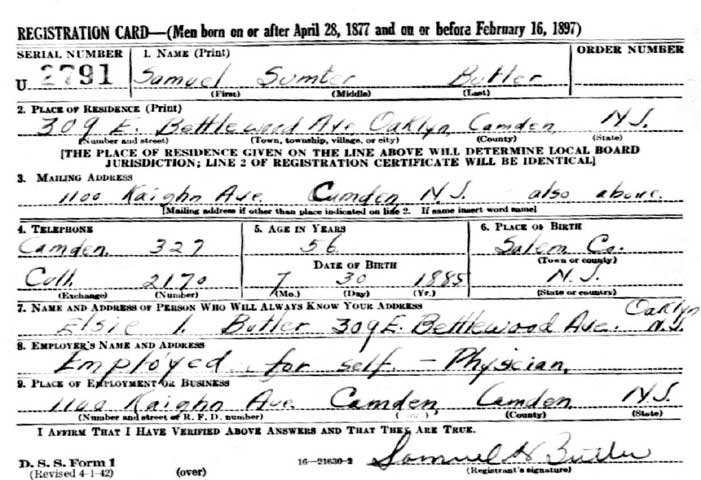 REGISTRATION CARD—(Men born on or after April 28, 1877 and on or before February 16, 1897)
SERIAL NUMBER 1. NAME (Print) ORDER NUMBER
U 2791 Samuel Sumter Butler
(First) (Middle) (Last)
2. PLACE OF RESIDENCE (Print)
309 E. Bettlewood Ave Oaklyn, Camden, N.J.
(Number and street) (Town, township, village, or city) (County) (State)
[THE PLACE OF RESIDENCE GIVEN ON THE LINE ABOVE WILL DETERMINE LOCAL BOARD
JURISDICTION; LINE 2 OF REGISTRATION CERTIFICATE WILL BE IDENTICAL]
3. MAILING ADDRESS
1100 Kaighn Ave. Camden, N.J. also above.
[Mailing address if other than place indicated on line 2. If same insert word same]
4. TELEPHONE 5. AGE IN YEARS 6. PLACE OF BIRTH
Camden. 327 56 Salem Co.
DATE OF BIRTH (Town or county)
Coll. 2170 7 30 1885 N.J.
(Exchange) (Number) (Mo.) (Day) (Yr.) (State or country)
7. NAME AND ADDRESS OF PERSON WHO WILL ALWAYS KNOW YOUR ADDRESS
Elsie I. Butler 309 E. Bettlewood Ave. Oaklyn N.J.
8. EMPLOYER'S NAME AND ADDRESS
Employed for self. - Physician,
9. PLACE OF EMPLOYMENT OR BUSINESS
1100 Kaighn Ave. Camden, Camden, N.J.
(Number and street or R. F. D. number) (County) (State)
I AFFIRM THAT I HAVE VERIFIED ABOVE ANSWERS AND THAT THEY ARE TRUE.
D. S. S. Form 1
(Revised 4-1-42) (over) 16—21630-2 Samuel Butler
(Registrant's signature)